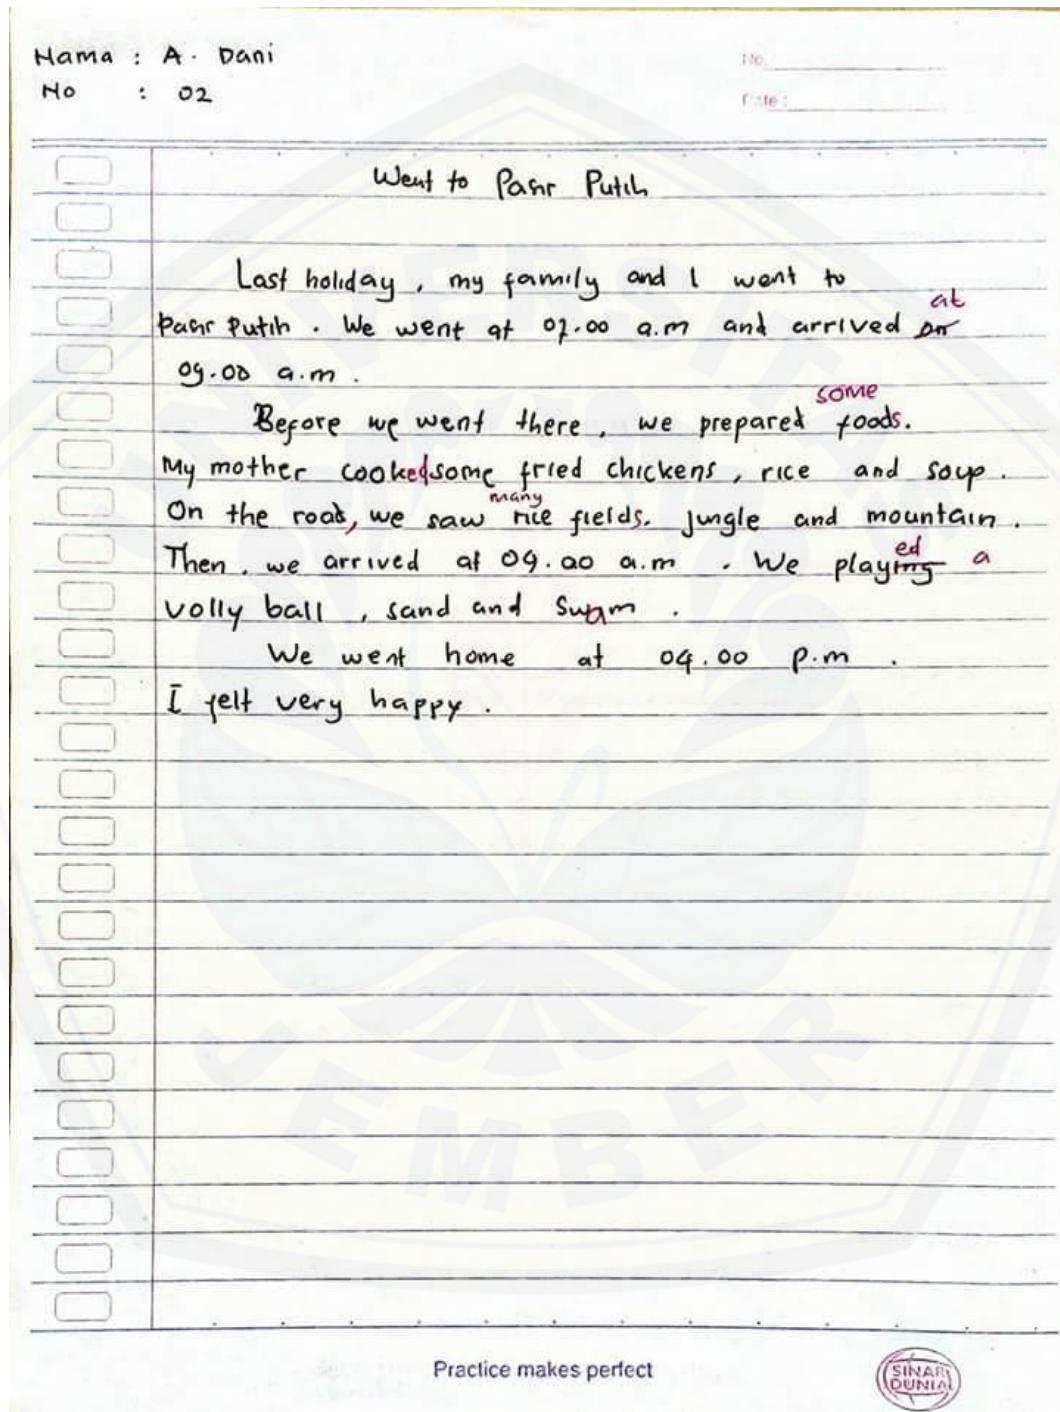 Nama : A. Dani
No.
No : 02
Date :
Went to Pasir Putih
Last holiday, my family and I went to
at
Pasir Putih. We went at 07.00 a.m and arrived on
09.00 a.m.
some
Before we went there, we prepared foods.
My mother cooked some fried chickens, rice and soup.
many
On the road, we saw rice fields. jungle and mountain.
ed
Then, we arrived at 09.00 a.m. We playing a
volly ball, sand and swam.
We went home at 04.00 p.m.
I felt very happy.
UNIVERSITAS
JEMBER
Practice makes perfect
SINAR
DUNIA